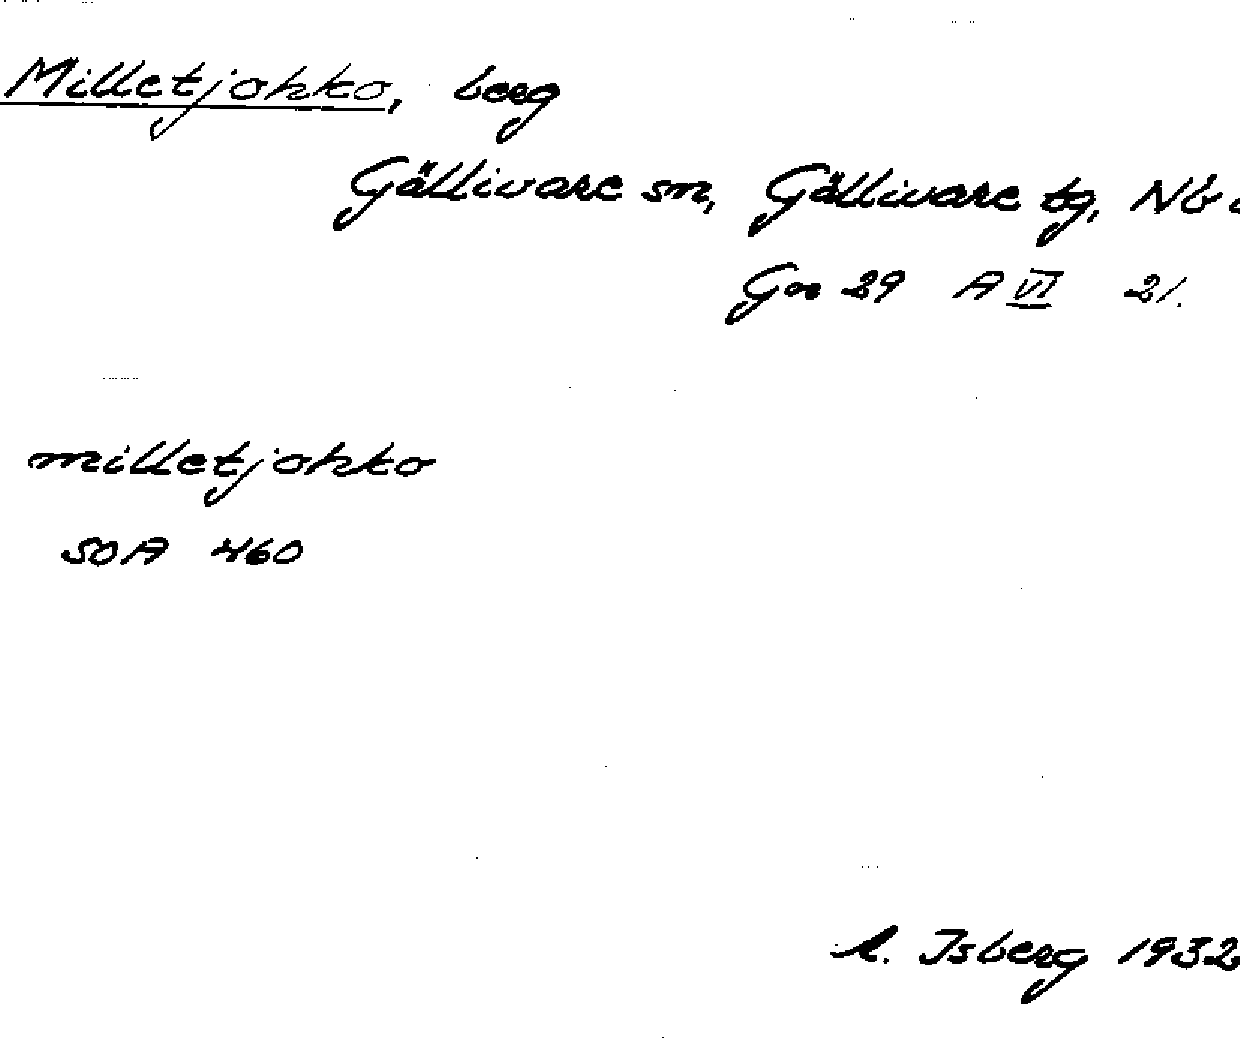 Milletjohko, berg
Gällivare sn, Gällivare tg, Nb
Gvr 29 A VI 21.
milletjohko
SOA 460
A. Isberg 1932